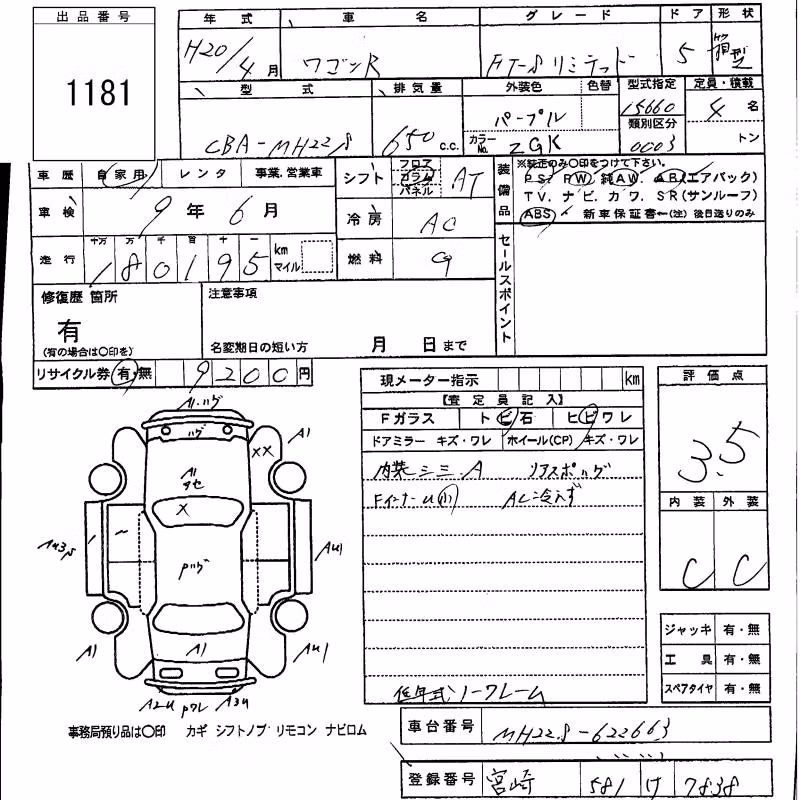 出品番号
1181
年式 車名 グレード ドア 形状
H20/4月 ワゴンR FT-Sリミテッド 5 箱型
型式 排気量 外装色 色替 型式指定 定員・積載
CBA-MH22S 650 c.c. パープル 15660 4名
カラーNo. ZGK 類別区分 0003 トン
車歴 自家用 レンタ 事業.営業車
シフト フロア コラム パネル AT
装備品 ※装正のみ〇印をつけて下さい。
PS. PW. 純AW. AB(エアバック)
TV. ナビ. カワ. SR(サンルーフ)
ABS 新車保証書←(注)後日送りのみ
車検 9年6月
冷房 AC
走行 十万 万 千 百 十 一
180195 km マイル
燃料 G
セールスポイント
修復歴 箇所
有
(有の場合は〇印を)
注意事項
名変期日の短い方 月 日まで
リサイクル券 有・無 9200円
現メーター指示 km
【査定員記入】
Fガラス トビ石 ヒビワレ
ドアミラー キズ・ワレ ホイール(CP) キズ・ワレ
内装シミ.A リアスポハゲ
FインナーU(小) AC冷えず
低年式 ノーフレーム
評価点
3.5
内装 外装
C C
ジャッキ 有・無
工具 有・無
スペアタイヤ 有・無
A1.ハゲ
ハゲ
XX A1
A1
X
Pハゲ
AU1
A1 A1 AU1
A2U Pワレ A3U
事務局預り品は〇印 カギ シフトノブ リモコン ナビロム
車台番号 MH22S-622663
登録番号 宮崎 581 け 7838